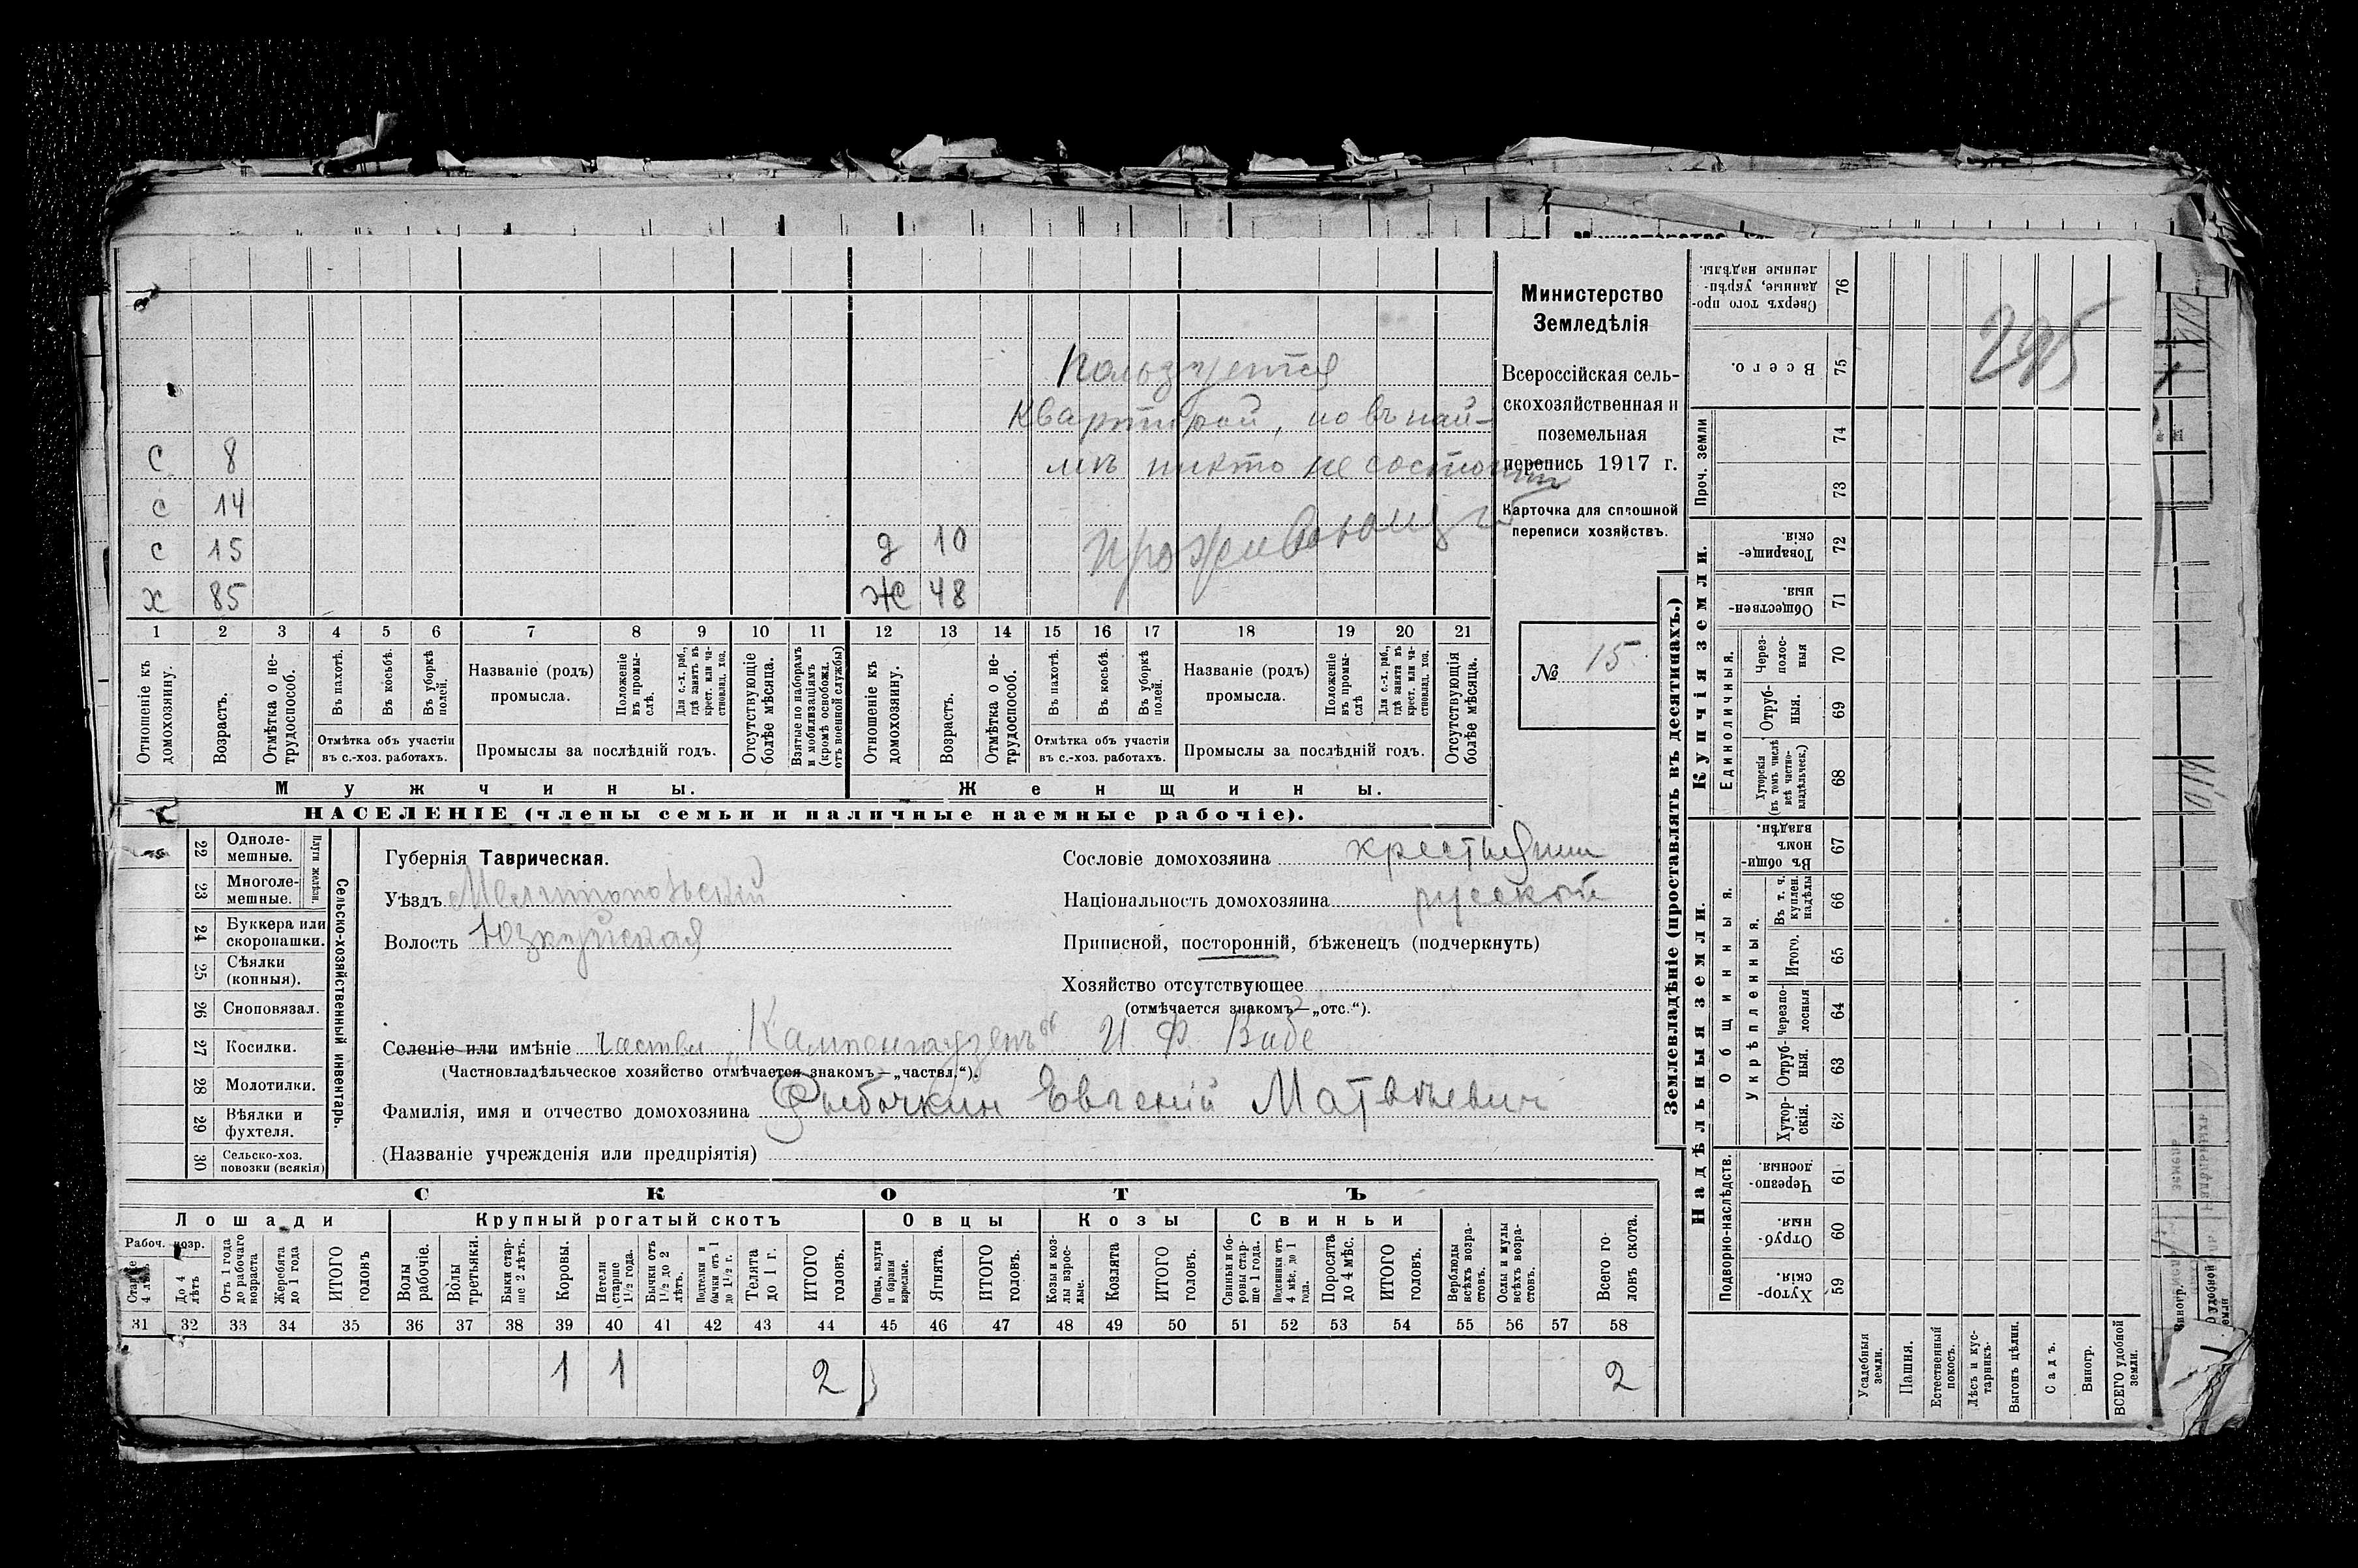 Министерство
Земледѣлія
Всероссійская сель-
скохозяйственная и
поземельная
перепись 1917 г.
Карточка для сплошной
переписи хозяйствъ.
№ 15
295
Пользуется
квартирой, но въ най-
мѣ никто не состоитъ
проживающій
С 8
с 14
с 15
х 85
д 10
Ж 48
1 2 3 4 5 6 7 8 9 10 11 12 13 14 15 16 17 18 19 20 21
Отношеніе къ домохозяину.
Возрастъ.
Отмѣтка о не-трудоспособ.
Въ пахотѣ.
Въ косьбѣ.
Въ уборкѣ полей.
Отмѣтка объ участіи
въ с.-хоз. работахъ.
Названіе (родъ)
промысла.
Положеніе въ промы-слѣ.
Для с.-х. раб., гдѣ занятъ въ крест. или ча-ствовлад. хоз.
Промыслы за послѣдній годъ.
Отсутствующіе болѣе мѣсяца.
Взятые по наборамъ и мобилизаціямъ (кромѣ освобожд. отъ военной службы)
Отношеніе къ домохозяину.
Возрастъ.
Отмѣтка о не-трудоспособ.
Въ пахотѣ.
Въ косьбѣ.
Въ уборкѣ полей.
Отмѣтка объ участіи
въ с.-хоз. работахъ.
Названіе (родъ)
промысла.
Положеніе въ промы-слѣ
Для с.-х. раб., гдѣ занятъ въ крест. или ча-ствовлад. хоз.
Промыслы за послѣдній годъ.
Отсутствующія болѣе мѣсяца.
Мужчины.
Женщины.
НАСЕЛЕНІЕ (члены семьи и наличные наемные рабочіе).
Сельско-хозяйственный инвентарь.
Плуги желѣзн.
22 Одноле-мешные.
23 Многоле-мешные.
24 Буккера или скоропашки.
25 Сѣялки (конныя).
26 Сноповязал.
27 Косилки.
28 Молотилки.
29 Вѣялки и фухтеля.
30 Сельско-хоз. повозки (всякія)
Губернія Таврическая.
Уѣздъ Мелитопольскій
Волость Юзкуйская
Сословіе домохозяина крестьянин
Національность домохозяина русской
Приписной, посторонній, бѣженецъ (подчеркнуть)
Хозяйство отсутствующее
(отмѣчается знакомъ—„отс.“).
Селеніе или имѣніе частвл „Кампенгаузенъ“ И. Ф. Вибе
(Частновладѣльческое хозяйство отмѣчается знакомъ—„частвл.“).
Фамилія, имя и отчество домохозяина Евгеній Матвѣевич
(Названіе учрежденія или предпріятія)
СКОТЪ
Лошади
Крупный рогатый скотъ
Овцы
Козы
Свиньи
Рабоч. возр.
Старше 4 лѣтъ.
До 4 лѣтъ
Отъ 1 года до рабочаго возраста
Жеребята до 1 года
ИТОГО головъ
Волы рабочіе.
Волы третьяки.
Быки стар-ше 2 лѣтъ.
Коровы.
Нетели старше 1½ года.
Бычки отъ 1½ до 2 лѣтъ.
Подтелки и бычки отъ 1 до 1½ г.
Телята до 1 г.
ИТОГО головъ.
Овцы, валухи и бараны взрослые.
Ягнята.
ИТОГО головъ.
Козы и коз-лы взрос-лые.
Козлята
ИТОГО головъ.
Свиньи и бо-ровы стар-ше 1 года.
Подсвинки отъ 4 мѣс. до 1 года.
Поросята до 4 мѣс.
ИТОГО головъ.
Верблюды всѣхъ возра-стовъ.
Ослы и мулы всѣхъ возра-стовъ.
Всего го-ловъ скота.
31 32 33 34 35 36 37 38 39 40 41 42 43 44 45 46 47 48 49 50 51 52 53 54 55 56 57 58
1 1 2 2
Землевладѣніе (проставлять въ десятинахъ.)
Купчія земли.
Надѣльныя земли.
Сверхъ того про-данные, укрѣп-ленные надѣлы. 76
Всего. 75
Проч. земли
74
73
Товарище-скія. 72
Обществен-ныя. 71
Единоличныя.
Через-полос-ныя 70
Отруб-ныя. 69
Хуторскія (въ томъ числѣ всѣ частно-владѣльческ.) 68
Общинныя.
Въ общин-номъ владѣн. 67
Укрѣпленныя.
Въ т. ч. куплен. надѣлы 66
Итого. 65
Черезпо-лосныя 64
Отруб-ныя. 63
Хутор-скія. 62
Подворно-наслѣдств.
Черезпо-лосныя. 61
Отруб-ныя. 60
Хутор-скія. 59
Усадебныя земли.
Пашня.
Естественный покосъ.
Лѣсъ и кус-тарникъ.
Выгонъ цѣлин.
Садъ.
Виногр.
ВСЕГО удобной земли.